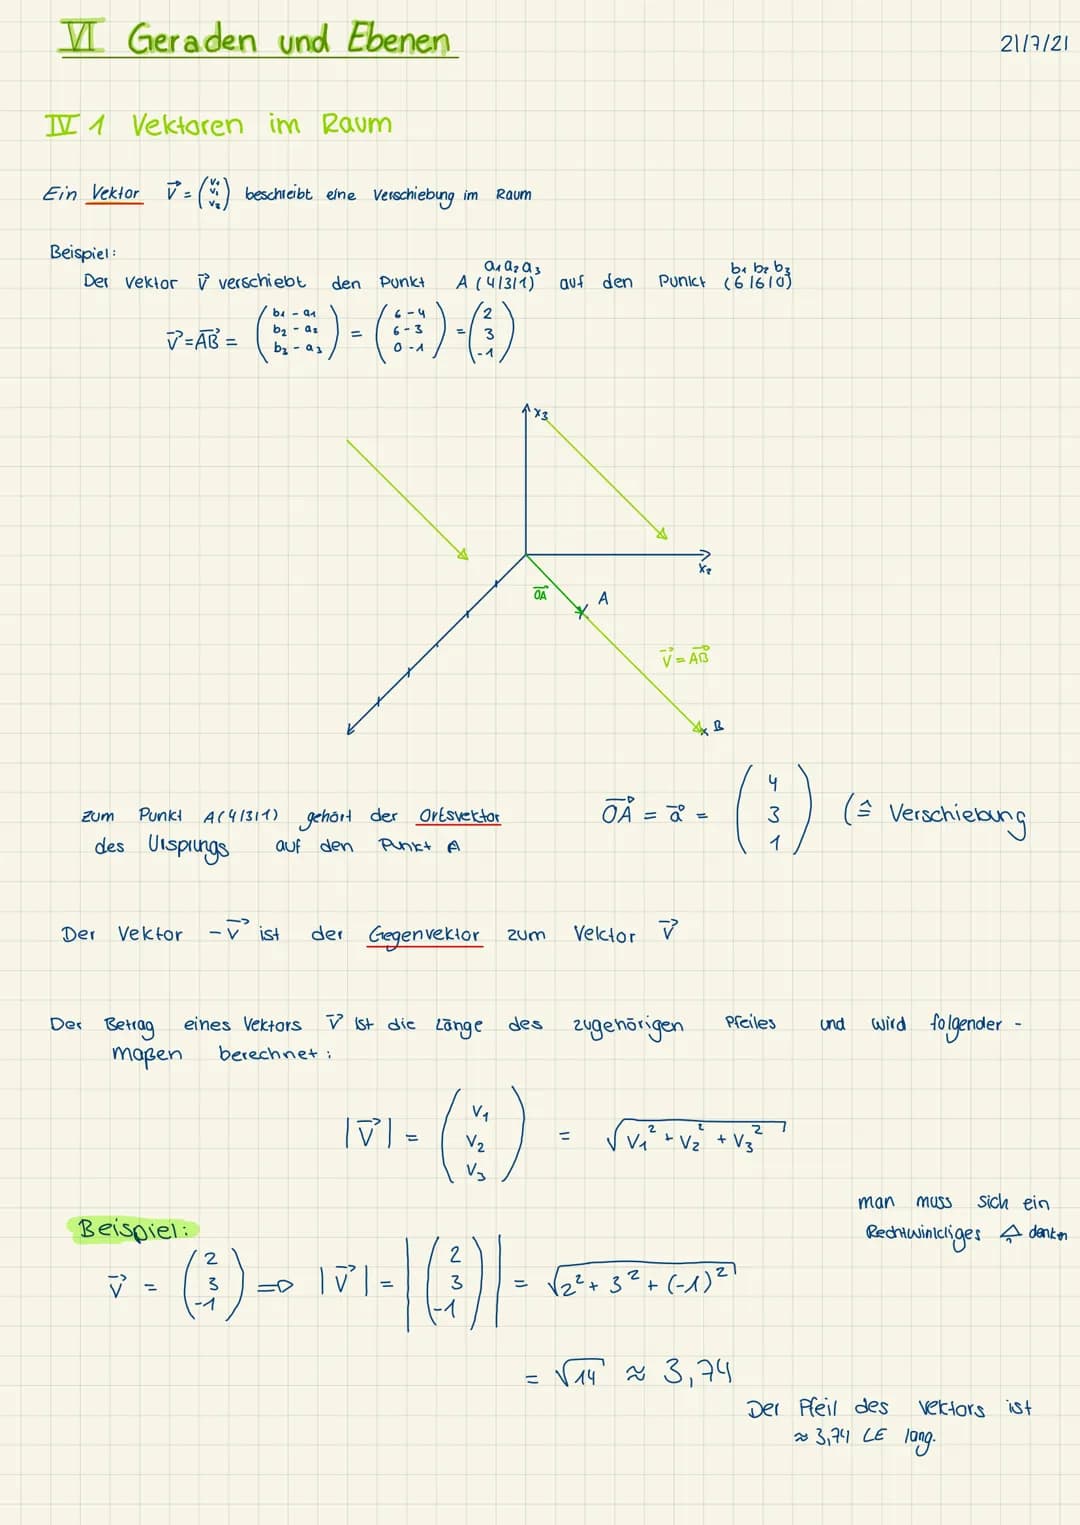 VI Geraden und Ebenen
21/7/21
IV 1 Vektoren im Raum
Ein Vektor v⃗ = (v₁ v₁ v₂) beschreibt eine Verschiebung im Raum
Beispiel:
a₁ a₂ a₃ b₁ b₂ b₃
Der Vektor v⃗ verschiebt den Punkt A (4|3|1) auf den Punkt (6|6|0)
v⃗ = AB⃗ = (b₁ - a₁ b₂ - a₂ b₃ - a₃) = (6 - 4 6 - 3 0 - 1) = (2 3 -1)
x₃
x₂
OA⃗
A
v⃗ = AB⃗
B
zum Punkt A(4|3|1) gehört der Ortsvektor OA⃗ = a⃗ = (4 3 1) (≙ Verschiebung
des Ursprungs auf den Punkt A
Der Vektor -v⃗ ist der Gegenvektor zum Vektor v⃗
Der Betrag eines Vektors v⃗ ist die Länge des zugehörigen Pfeiles und wird folgender -
maßen berechnet:
|v⃗| = (v₁ v₂ v₃) = √v₁² + v₂² + v₃²
man muss sich ein
Rechtwinkliges △ denken
Beispiel:
v⃗ = (2 3 -1) => |v⃗| = |(2 3 -1)| = √2² + 3² + (-1)²
= √14 ≈ 3,74
Der Pfeil des Vektors ist
≈ 3,74 LE lang.